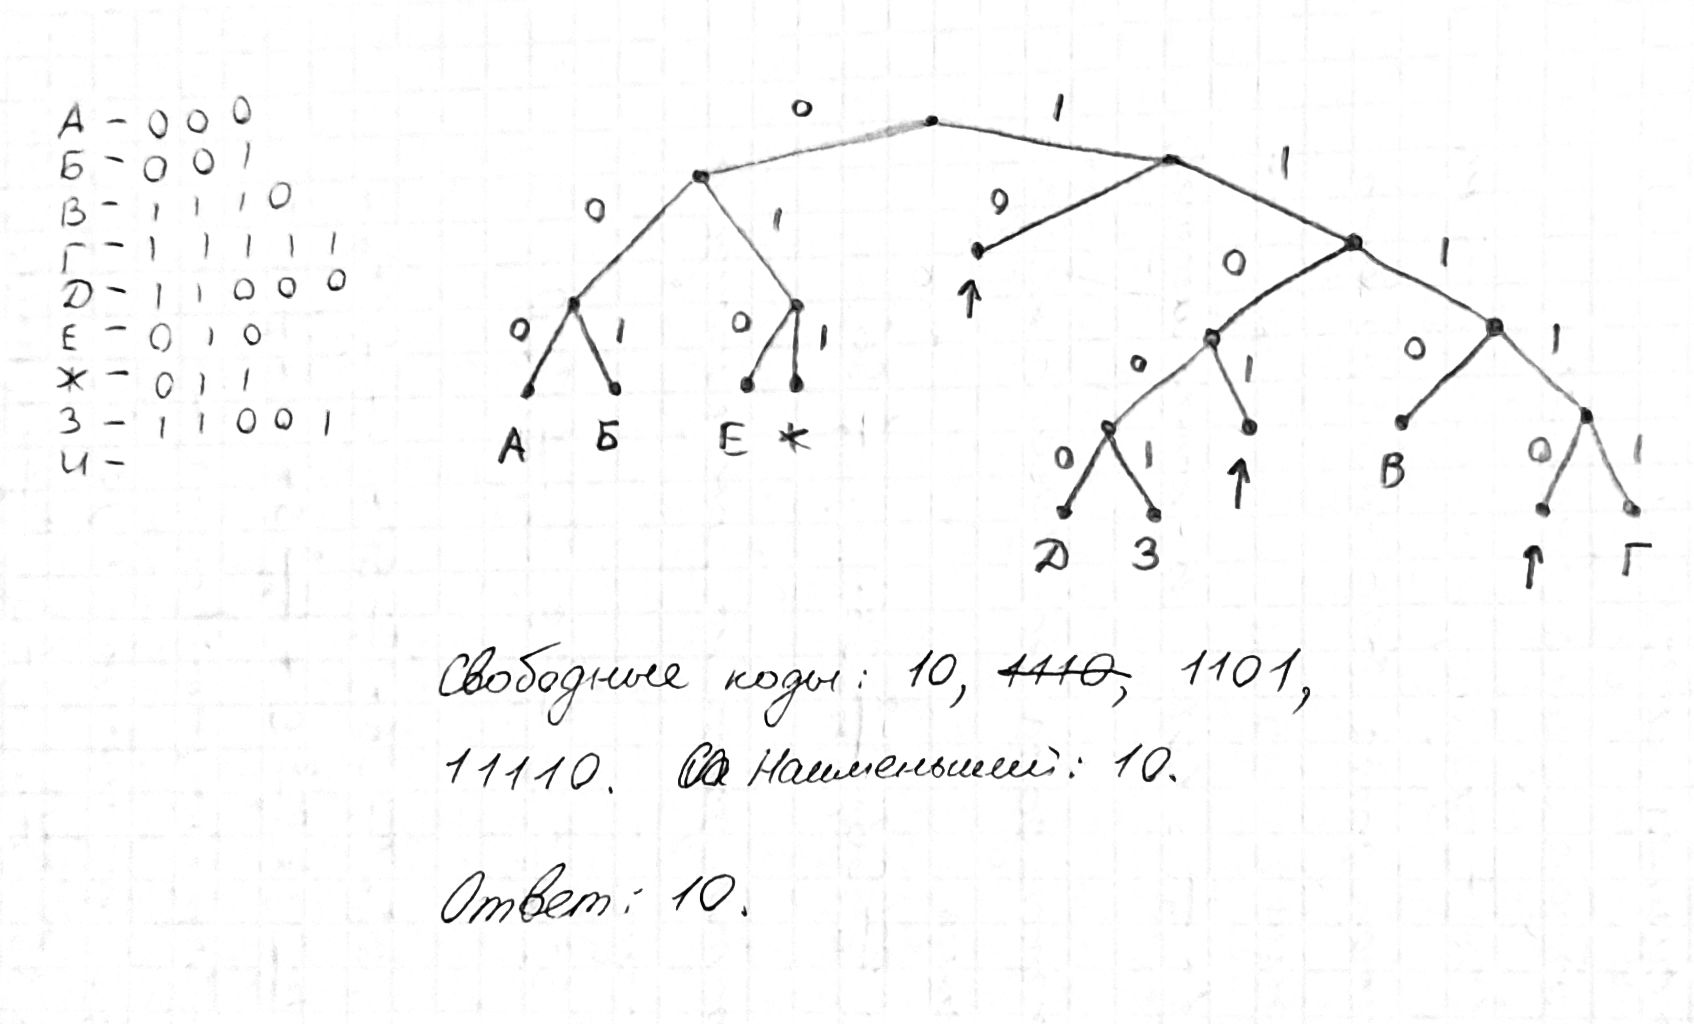 А - 0 0 0
Б - 0 0 1
В - 1 1 1 0
Г - 1 1 1 1 1
Д - 1 1 0 0 0
Е - 0 1 0
Ж - 0 1 1
З - 1 1 0 0 1
И -
0 1
0 1 0 1
0 1 0 1 0 1
0 1 0 1
А Б Е Ж
0 1 В 0 1
Д З Г
Свободные коды: 10, 1110, 1101,
11110. Наименьший: 10.
Ответ: 10.